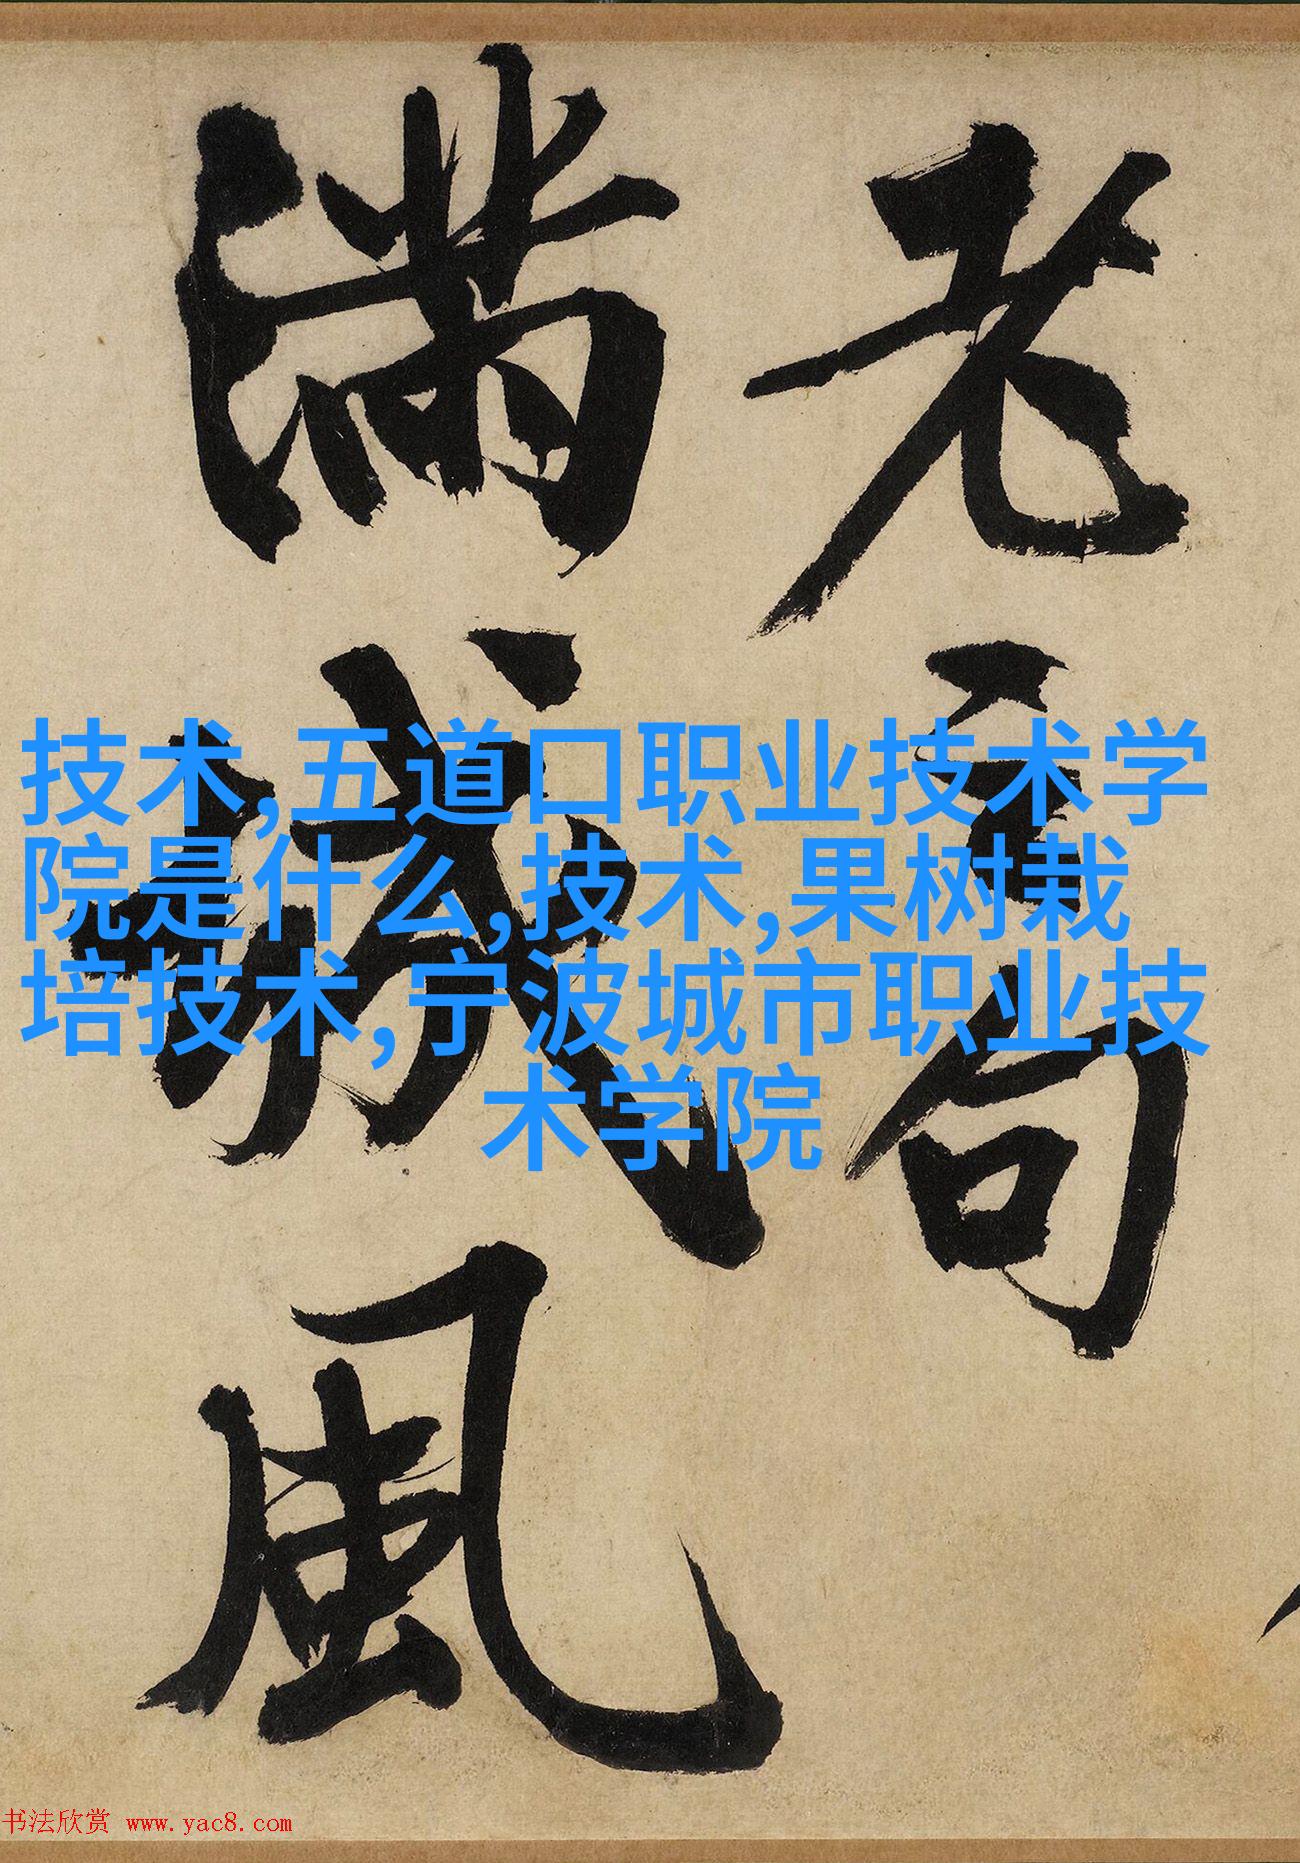 老句
滿城風
技术,五道口职业技术学
院是什么,技术,果树栽
培技术,宁波城市职业技
术学院
书法欣赏 www.yac8.com